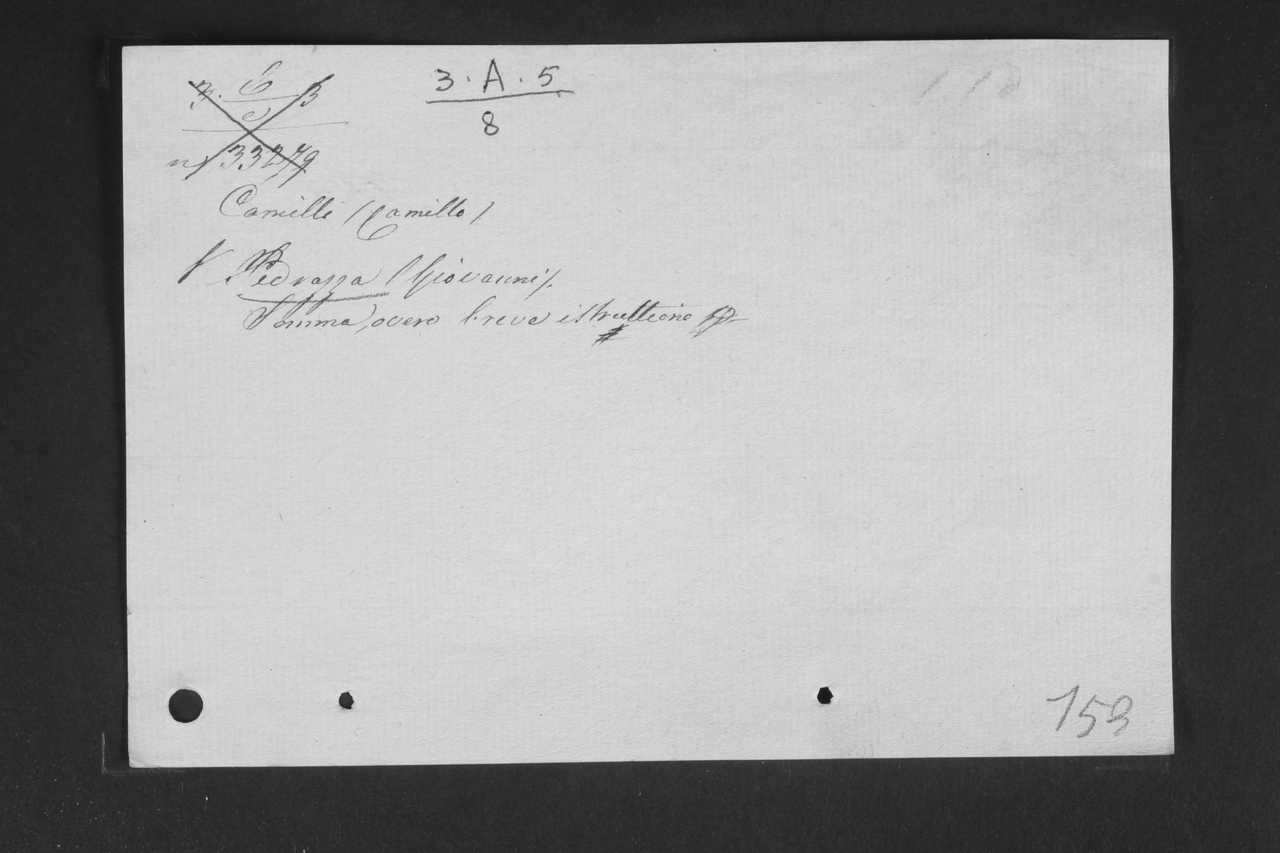 3 . A . 5
8
n. 33279
Camilli (Camillo)
V. Pedrazza (Giovanni).
Somma, overo breve istruttione
153